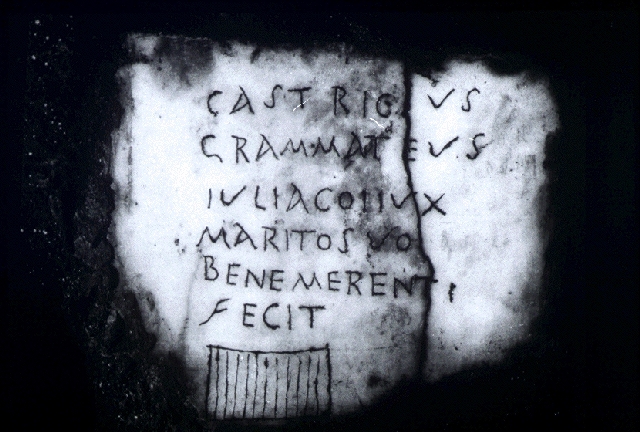 CASTRICIVS
GRAMMATEVS
IVLIA CONIVX
MARITO SVO
BENEMERENTI
FECIT